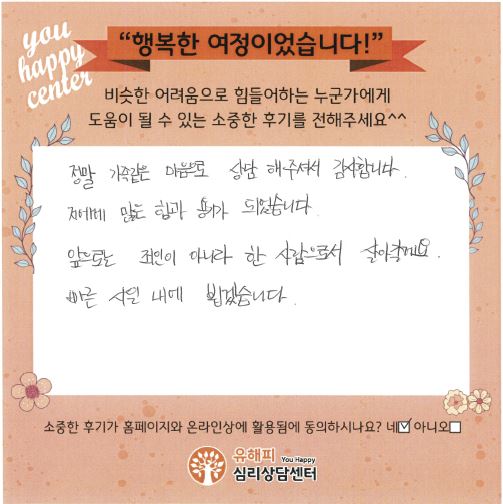 you
happy
center
“행복한 여정이었습니다!”
비슷한 어려움으로 힘들어하는 누군가에게
도움이 될 수 있는 소중한 후기를 전해주세요^^
정말 가족같은 마음으로 상담 해주셔서 감사합니다.
저에게 많은 힘과 용기가 되었습니다.
앞으로는 죄인이 아니라 한 사람으로서 살아갈께요.
빠른 시일 내에 뵙겠습니다.
소중한 후기가 홈페이지와 온라인상에 활용됨에 동의하시나요? 네☑ 아니오☐
유해피 You Happy
심리상담센터